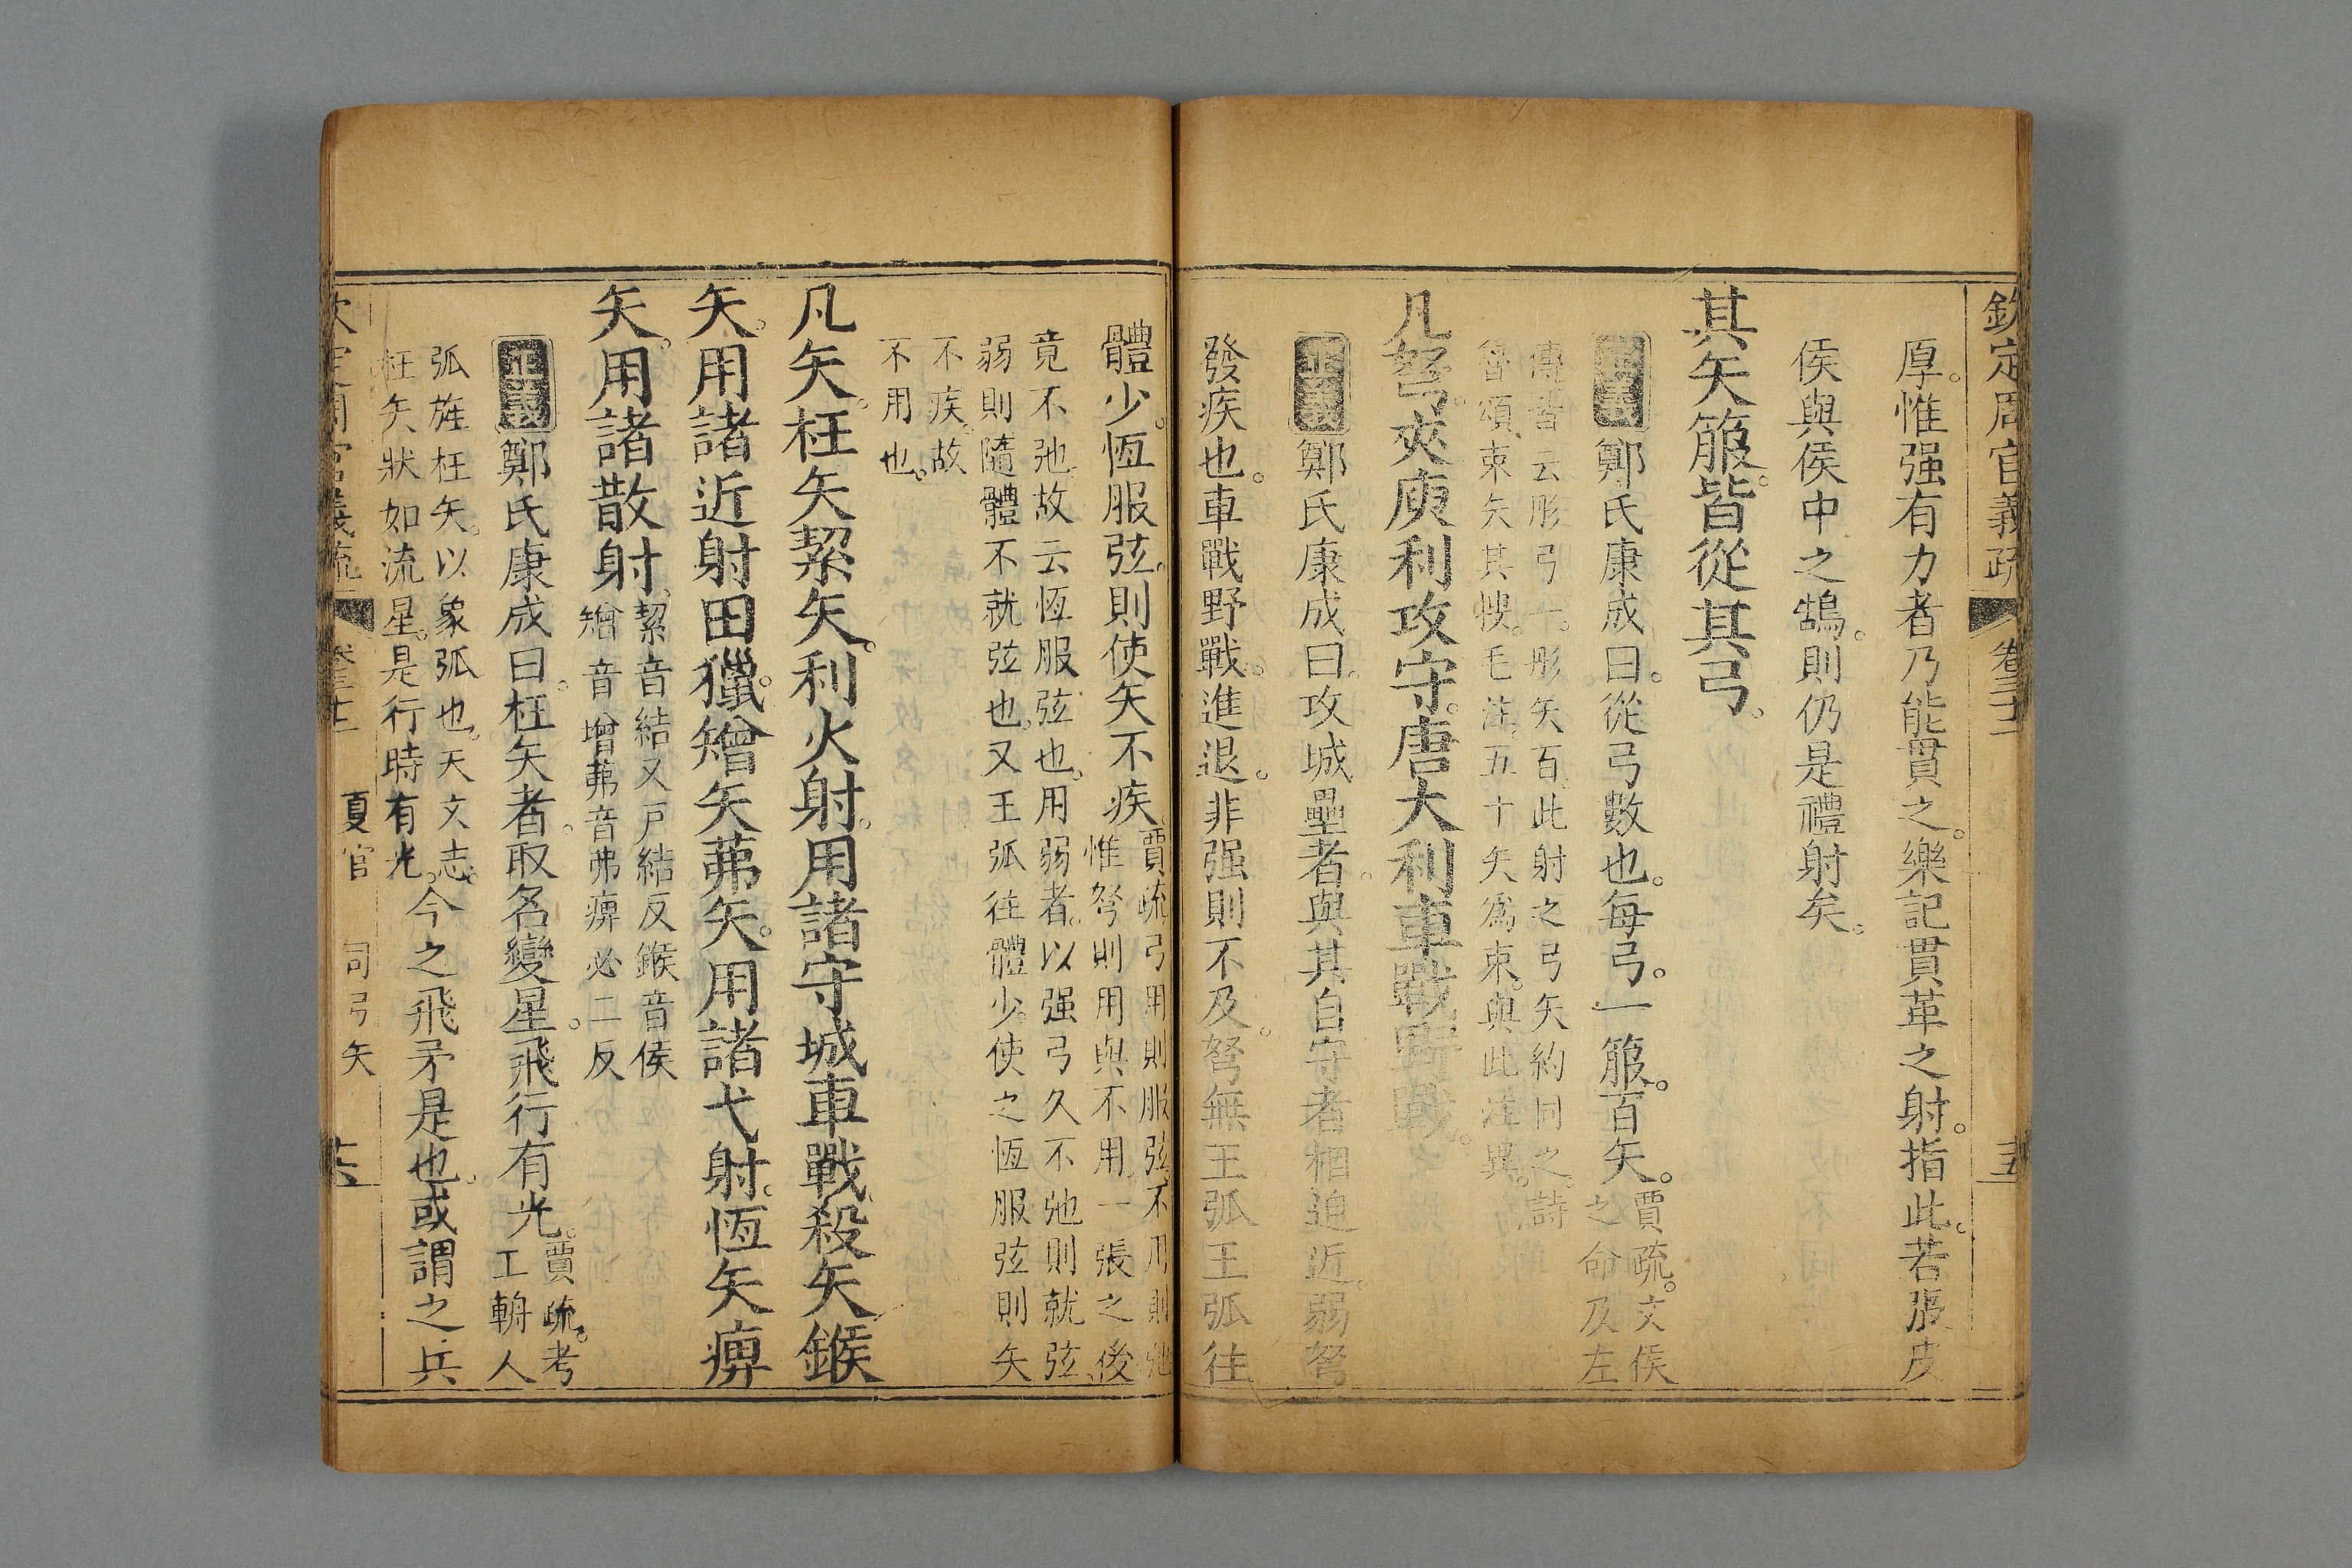 欽定周官義疏 卷三十二 十五
厚。惟强有力者乃能貫之。樂記貫革之射。指此。若張皮
侯與侯中之鵠。則仍是禮射矣。
其矢箙。皆從其弓。
正義 鄭氏康成曰。從弓數也。每弓。一箙。百矢。
賈疏。文侯
之命及左
傳皆云彤弓一。彤矢百。此射之弓矢約同之。詩
魯頌束矢其㮶。毛注。五十矢爲束。與此注異。
凡弩。夾庾利攻守。唐大利車戰野戰。
正義 鄭氏康成曰。攻城壘者。與其自守者相迫近。弱弩
發疾也。車戰野戰。進退。非强則不及。弩無王弧。王弧往
體少。恆服弦。則使矢不疾
賈疏弓用則服弦。不用則弛
惟弩則用與不用。一張之後
竟不弛。故云恆服弦也。用弱者。以强弓久不弛則就弦。
弱則隨體不就弦也。又王弧往體少。使之恆服弦則矢
不疾。故
不用也。
凡矢。枉矢絜矢。利火射。用諸守城車戰。殺矢鍭
矢。用諸近射田獵。矰矢茀矢。用諸弋射。恆矢痹
矢。用諸散射。
絜音結又戸結反鍭音侯
矰音增茀音弗痹必二反
正義 鄭氏康成曰。枉矢者。取名變星。飛行有光。
賈疏。考
工輈人
弧旌枉矢。以象弧也。天文志。
枉矢狀如流星。是行時有光。
今之飛矛是也。或謂之兵
欽定周官義疏 卷三十二 夏官 司弓矢 十六